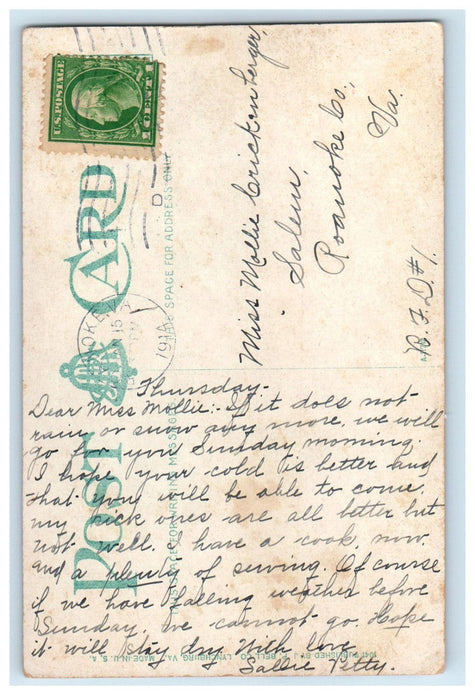 U.S. POSTAGE
1 CENT 1
POST CARD
THIS SPACE FOR ADDRESS ONLY
ROANOKE, VA.
15
PM
191
Miss Mollie Crickenberger,
Salem,
Roanoke Co.,
Va.
R. F. D #1.
Thursday-
Dear Miss Mollie:- If it does not
rain or snow any more, we will
go for you Sunday morning.
I hope your cold is better and
that you will be able to come.
my sick ones are all better but
not well. I have a cook, now.
and a plenty of sewing. Of course
if we have falling weather before
Sunday, we cannot go. Hope
it will stay dry. With love
Sallie Petty.
PUBLISHED BY J. P. BELL CO. LYNCHBURG, VA. MADE IN U. S. A.